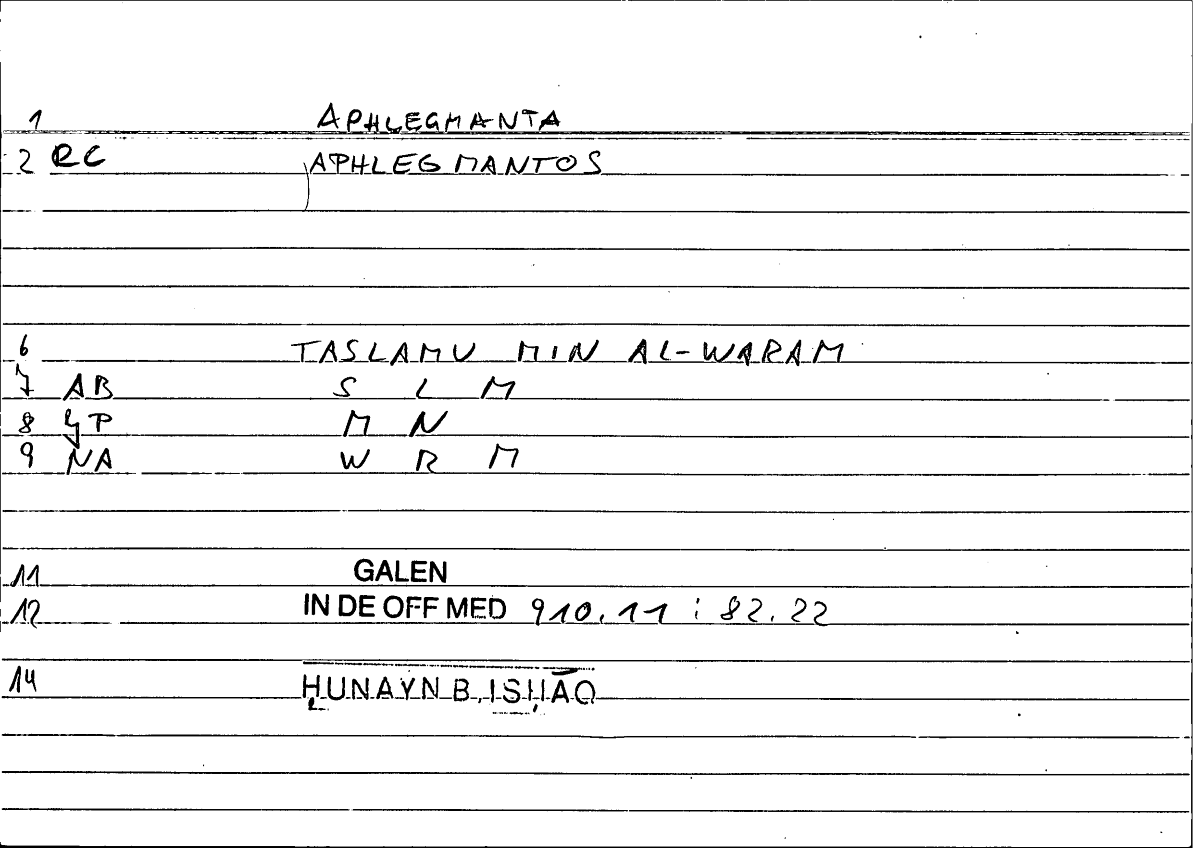 1 APHLEGMANTA
2 RC APHLEGMANTOS
6 TASLAMU MIN AL-WARAM
7 AB S L M
8 GP M N
9 NA W R M
11 GALEN
12 IN DE OFF MED 910.11 : 82.22
14 ḤUNAYN B. ISḤĀQ